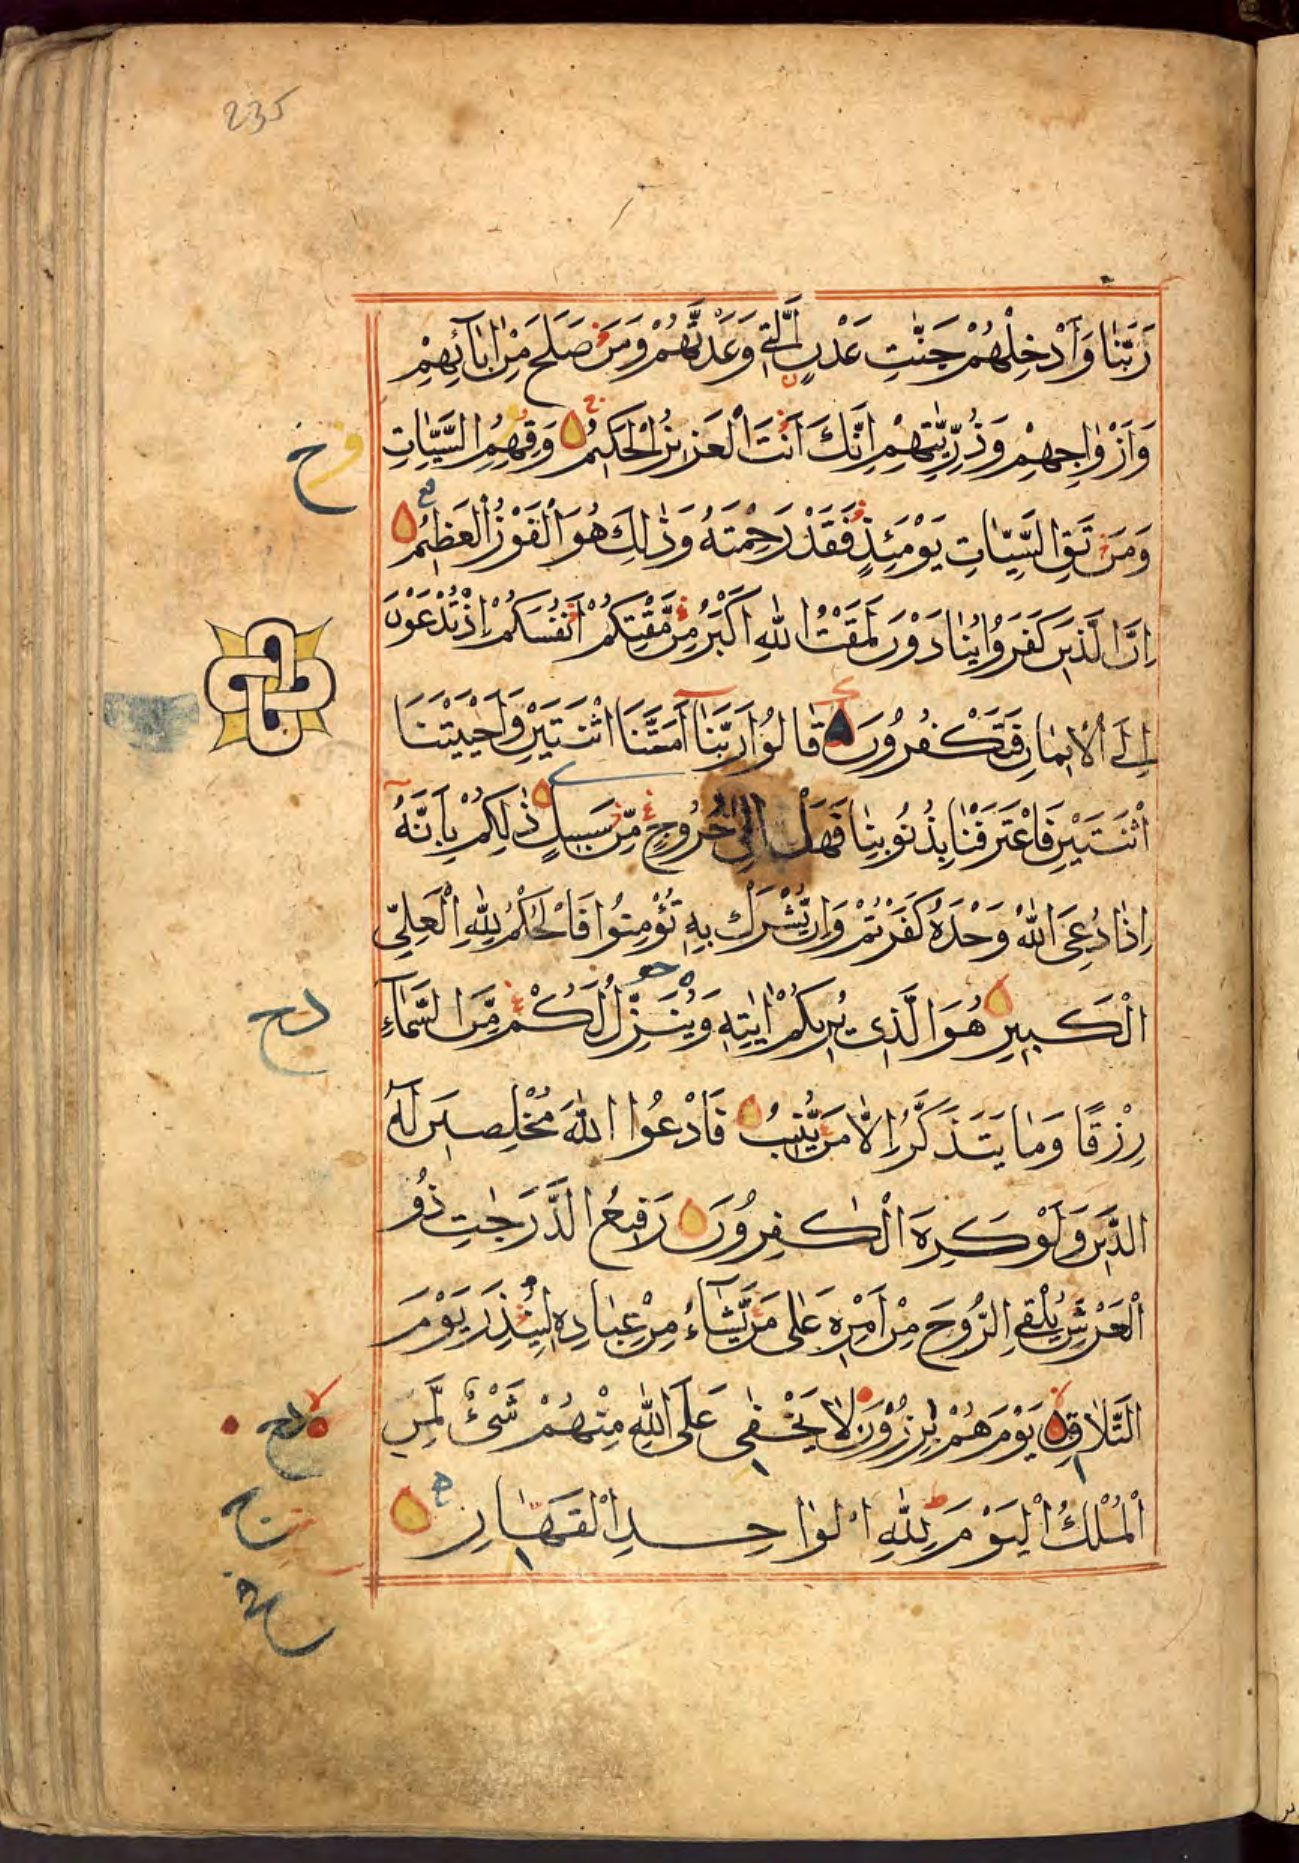 235
رَبَّنَا وَاَدْخِلْهُمْ جَنّٰتِ عَدْنٍ الَّتِي وَعَدْتَّهُمْ وَمَنْ صَلَحَ مِنْ اٰبَآئِهِمْ
وَاَزْوٰاجِهِمْ وَذُرِّيّٰتِهِمْ اِنَّكَ اَنْتَ الْعَزِيزُ الْحَكِيمُ وَقِهِمُ السَّيِّاٰتِ
وَمَنْ تَقِ السَّيِّاٰتِ يَوْمَئِذٍ فَقَدْ رَحِمْتَهُ وَذٰلِكَ هُوَ الْفَوْزُ الْعَظِيمُ
اِنَّ الَّذِينَ كَفَرُوا يُنَادَوْنَ لَمَقْتُ اللّٰهِ اَكْبَرُ مِنْ مَقْتِكُمْ اَنْفُسَكُمْ اِذْ تُدْعَوْنَ
اِلَى الْاِيمَانِ فَتَكْفُرُونَ قَالُوا رَبَّنَا اَمَتَّنَا اثْنَتَيْنِ وَاَحْيَيْتَنَا
اثْنَتَيْنِ فَاعْتَرَفْنَا بِذُنُوبِنَا فَهَلْ اِلٰى خُرُوجٍ مِنْ سَبِيلٍ ذٰلِكُمْ بِاَنَّهُ
اِذَا دُعِيَ اللّٰهُ وَحْدَهُ كَفَرْتُمْ وَاِنْ يُشْرَكْ بِهِ تُؤْمِنُوا فَالْحُكْمُ لِلّٰهِ الْعَلِيِّ
الْكَبِيرِ هُوَ الَّذِي يُرِيكُمْ اٰيَاتِهِ وَيُنَزِّلُ لَكُمْ مِنَ السَّمَآءِ
رِزْقًا وَمَا يَتَذَكَّرُ اِلَّا مَنْ يُنِيبُ فَادْعُوا اللّٰهَ مُخْلِصِينَ لَهُ
الدِّينَ وَلَوْ كَرِهَ الْكٰفِرُونَ رَفِيعُ الدَّرَجٰتِ ذُو
الْعَرْشِ يُلْقِي الرُّوحَ مِنْ اَمْرِهِ عَلٰى مَنْ يَّشَآءُ مِنْ عِبَادِهِ لِيُنْذِرَ يَوْمَ
التَّلَاقِ يَوْمَ هُمْ بٰرِزُونَ لَا يَخْفٰى عَلَى اللّٰهِ مِنْهُمْ شَيْءٌ لِمَنِ
الْمُلْكُ الْيَوْمَ لِلّٰهِ الْوَاحِدِ الْقَهَّارِ